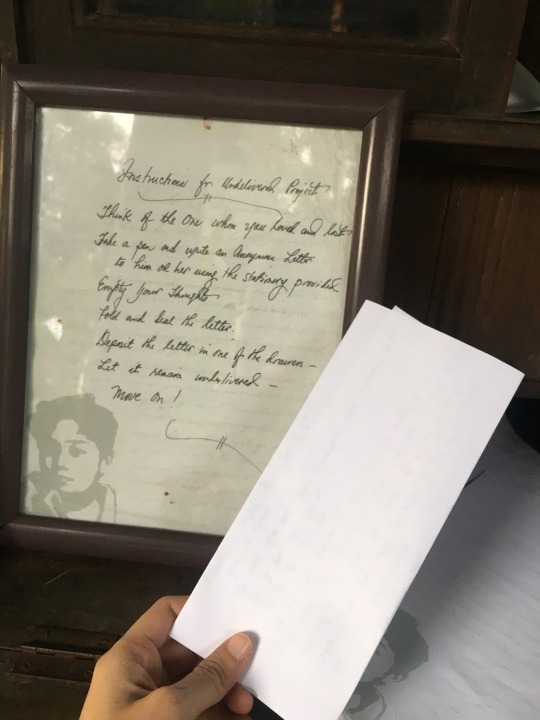 Instructions for Undelivered Project
Think of the One whom you loved and lost
Take a pen and write an Anonymous Letter
to him or her using the stationary provided
Empty Your Thoughts
Fold and Seal the letter.
Deposit the letter in one of the drawers –
Let it remain undelivered –
Move On!